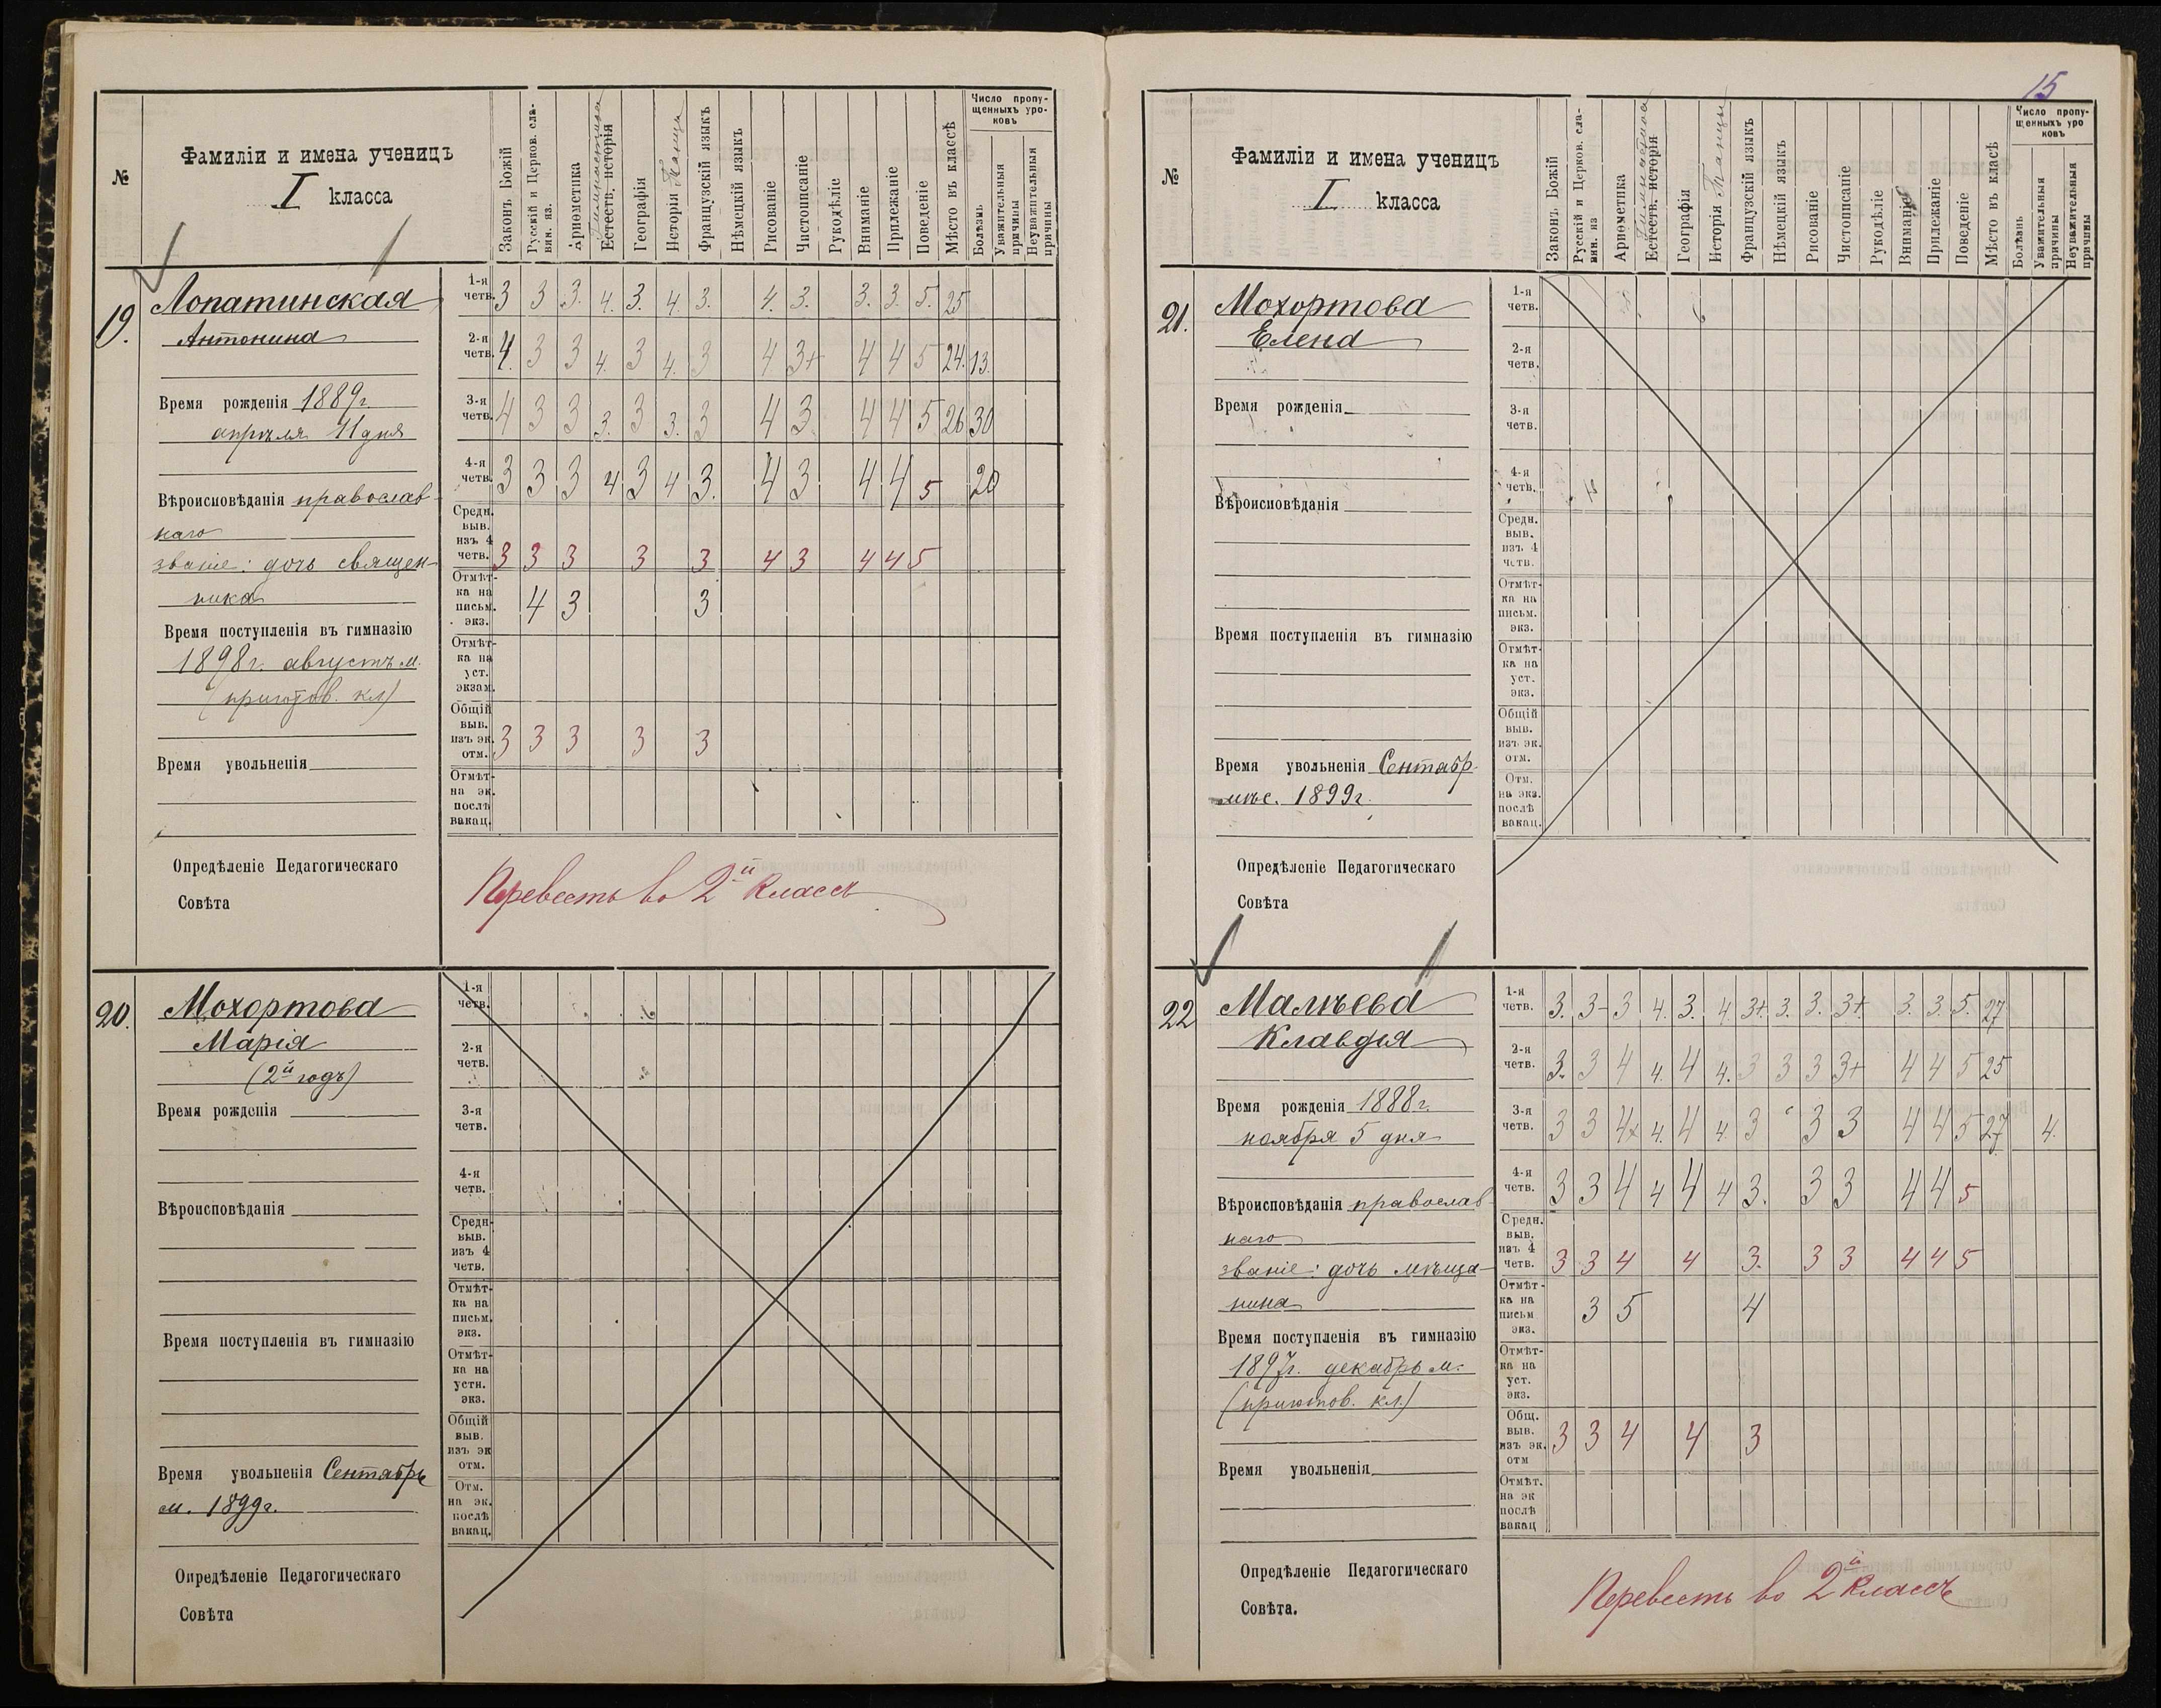 №
Фамиліи и имена ученицъ
I класса
Законъ Божій
Русскій и Церков. сла-
вян. яз.
Ариѳметика
Гимнастика
Естеств. исторія
Географія
Исторія Танцы
Французскій языкъ
Нѣмецкій языкъ
Рисованіе
Чистописаніе
Рукодѣліе
Вниманіе
Прилежаніе
Поведеніе
Мѣсто въ классѣ
Число пропу-
щенныхъ уро-
ковъ
Болѣзнь
Уважительныя
причины
Неуважительныя
причины
19.
Лопатинская
Антонина
Время рожденія 1889г.
апрѣля 11 дня
Вѣроисповѣданія православ-
наго
званіе: дочь священ-
ника
Время поступленія въ гимназію
1898г. августъ м.
(приготов. кл)
Время увольненія
1-я
четв. 3 3 3. 4. 3. 4. 3. 4. 3. 3. 3. 5. 25
2-я
четв. 4. 3 3 4. 3 4. 3 4 3+ 4 4 5 24. 13.
3-я
четв. 4 3 3 3. 3 3. 3 4 3 4 4 5 26 30
4-я
четв. 3 3 3 4 3 4 3. 4 3 4 4 5 20
Средн.
выв.
изъ 4
четв. 3 3 3 3 3 4 3 4 4 5
Отмѣт-
ка на
письм.
экз. 4 3 3
Отмѣт-
ка на
уст.
экзам.
Общій
выв.
изъ эк.
отм. 3 3 3 3 3
Отмѣт-
на эк.
послѣ
вакац.
Опредѣленіе Педагогическаго
Совѣта
Перевесть во 2й классъ
20.
Мохортова
Марія
(2й годъ)
Время рожденія
Вѣроисповѣданія
Время поступленія въ гимназію
Время увольненія Сентябрь
м. 1899г.
1-я
четв.
2-я
четв.
3-я
четв.
4-я
четв.
Средн.
выв.
изъ 4
четв.
Отмѣт-
ка на
письм.
экз.
Отмѣт-
ка на
устн.
экз.
Общій
выв.
изъ эк
отм.
Отм.
на эк.
послѣ
вакац.
Опредѣленіе Педагогическаго
Совѣта
15
№
Фамиліи и имена ученицъ
I класса
Законъ Божій
Русскій и Церков. сла-
вян. яз
Ариѳметика
Гимнастика
Естеств. исторія
Географія
Исторія Танцы
Французскій языкъ
Нѣмецкій языкъ
Рисованіе
Чистописаніе
Рукодѣліе
Вниманіе
Прилежаніе
Поведеніе
Мѣсто въ класѣ
Число пропу-
щенныхъ уро
ковъ
Болѣзнь
Уважительныя
причины
Неуважительныя
причины
21.
Мохортова
Елена
Время рожденія
Вѣроисповѣданія
Время поступленія въ гимназію
Время увольненія Сентябр.
мѣс. 1899г.
1-я
четв.
2-я
четв.
3-я
четв.
4-я
четв.
Средн.
выв.
изъ 4
четв.
Отмѣт-
ка на
письм.
экз.
Отмѣт-
ка на
уст.
экз.
Общій
выв.
изъ эк.
отм.
Отм.
на экз.
послѣ
вакац.
Опредѣленіе Педагогическаго
Совѣта
22
Малѣева
Клавдія
Время рожденія 1888г.
ноября 5 дня
Вѣроисповѣданія православ-
наго
званіе: дочь мѣща-
нина
Время поступленія въ гимназію
1897г. декабрь м.
(приготов. кл.)
Время увольненія
1-я
четв. 3. 3- 3 4. 3. 4. 3+. 3. 3. 3+. 3. 3. 5. 27
2-я
четв. 3. 3 4 4. 4 4. 3 3 3 3+ 4 4 5 25
3-я
четв. 3 3 4+ 4. 4 4. 3 3 3 4 4 5 27 4.
4-я
четв. 3 3 4 4 4 4 3. 3 3 4 4 5
Средн.
выв.
изъ 4
четв. 3 3 4 4 3. 3 3 4 4 5
Отмѣт-
ка на
письм
экз. 3 5 4
Отмѣт-
ка на
уст.
экз.
Общ.
выв.
изъ эк.
отм 3 3 4 4 3
Отмѣт.
на эк
послѣ
вакац
Опредѣленіе Педагогическаго
Совѣта.
Перевесть во 2й классъ